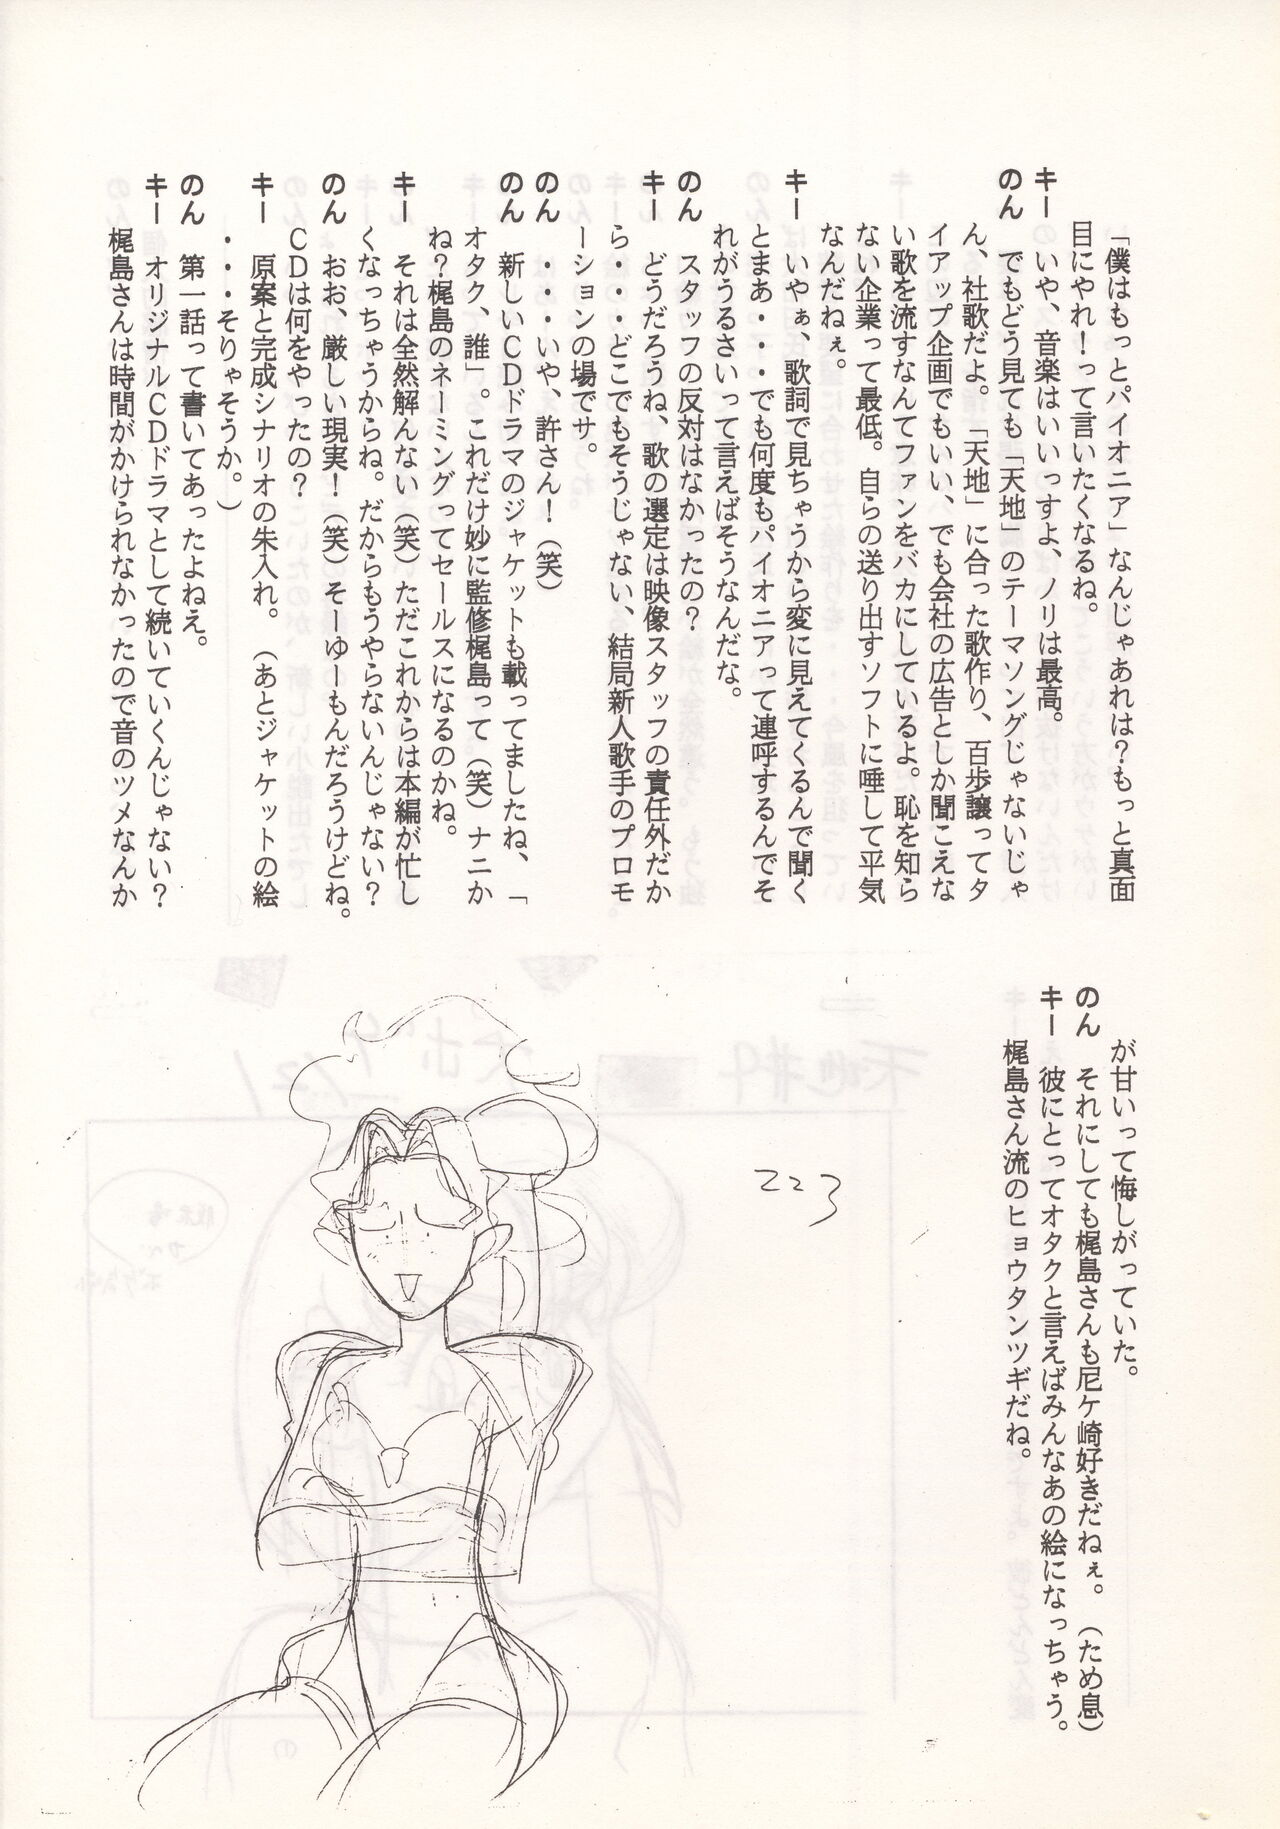 「僕はもっとパイオニア」なんじゃあれは？もっと真面
目にやれ！って言いたくなるね。
キー　いや、音楽はいいっすよ、ノリは最高。
のん　でもどう見ても「天地」のテーマソングじゃないじゃ
ん、社歌だよ。「天地」に合った歌作り、百歩譲ってタ
イアップ企画でもいい、でも会社の広告としか聞こえな
い歌を流すなんてファンをバカにしているよ。恥を知ら
ない企業って最低。自らの送り出すソフトに唾して平気
なんだねぇ。
キー　いやぁ、歌詞で見ちゃうから変に見えてくるんで聞く
とまあ・・・でも何度もパイオニアって連呼するんでそ
れがうるさいって言えばそうなんだな。
のん　スタッフの反対はなかったの？
キー　どうだろうね、歌の選定は映像スタッフの責任外だか
ら・・・どこでもそうじゃない、結局新人歌手のプロモ
ーションの場でサ。
のん　・・・いや、許さん！（笑）
のん　新しいＣＤドラマのジャケットも載ってましたね、「
オタク、誰」。これだけ妙に監修梶島って（笑）ナニか
ね？梶島のネーミングってセールスになるのかね。
キー　それは全然解んない（笑）ただこれからは本編が忙し
くなっちゃうからね。だからもうやらないんじゃない？
のん　おお、厳しい現実！（笑）そーゆーもんだろうけどね。
ＣＤは何をやったの？
キー　原案と完成シナリオの朱入れ。（あとジャケットの絵
・・・そりゃそうか。）
のん　第一話って書いてあったよねえ。
キー　オリジナルＣＤドラマとして続いていくんじゃない？
梶島さんは時間がかけられなかったので音のツメなんか
が甘いって悔しがっていた。
のん　それにしても梶島さんも尼ケ崎好きだねぇ。（ため息）
キー　彼にとってオタクと言えばみんなあの絵になっちゃう。
梶島さん流のヒョウタンツギだね。
223